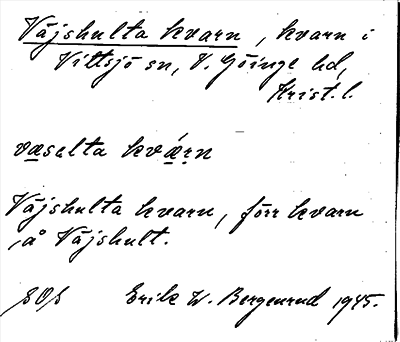 Väjshulta kvarn, kvarn i
Vittsjö sn, V. Göinge hd,
Krist. l.
væselta kvǽṛn
Väjshulta kvarn, förr kvarn
å Väjshult.
SOS Erik W. Bergenrud 1945.